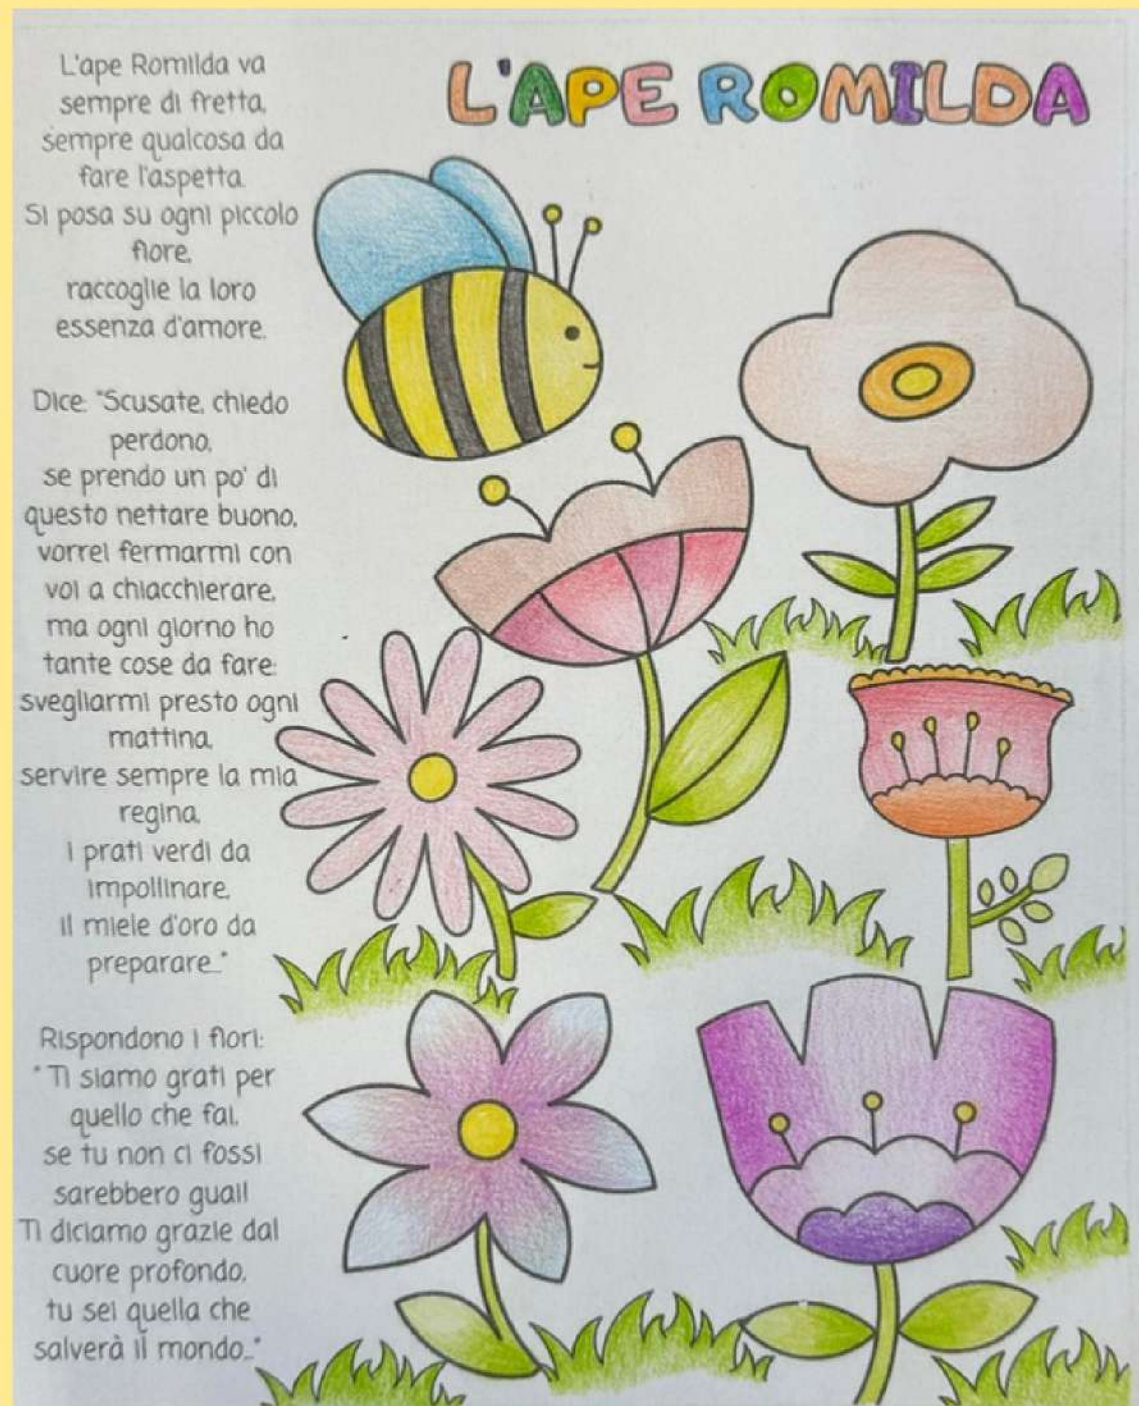 L'APE ROMILDA
L'ape Romilda va
sempre di fretta,
sempre qualcosa da
fare l'aspetta.
Si posa su ogni piccolo
fiore,
raccoglie la loro
essenza d'amore.
Dice: "Scusate, chiedo
perdono,
se prendo un po' di
questo nettare buono,
vorrei fermarmi con
voi a chiacchierare,
ma ogni giorno ho
tante cose da fare:
svegliarmi presto ogni
mattina,
servire sempre la mia
regina,
i prati verdi da
impollinare,
il miele d'oro da
preparare..."
Rispondono i fiori:
"Ti siamo grati per
quello che fai,
se tu non ci fossi
sarebbero guai!
Ti diciamo grazie dal
cuore profondo,
tu sei quella che
salverà il mondo..."